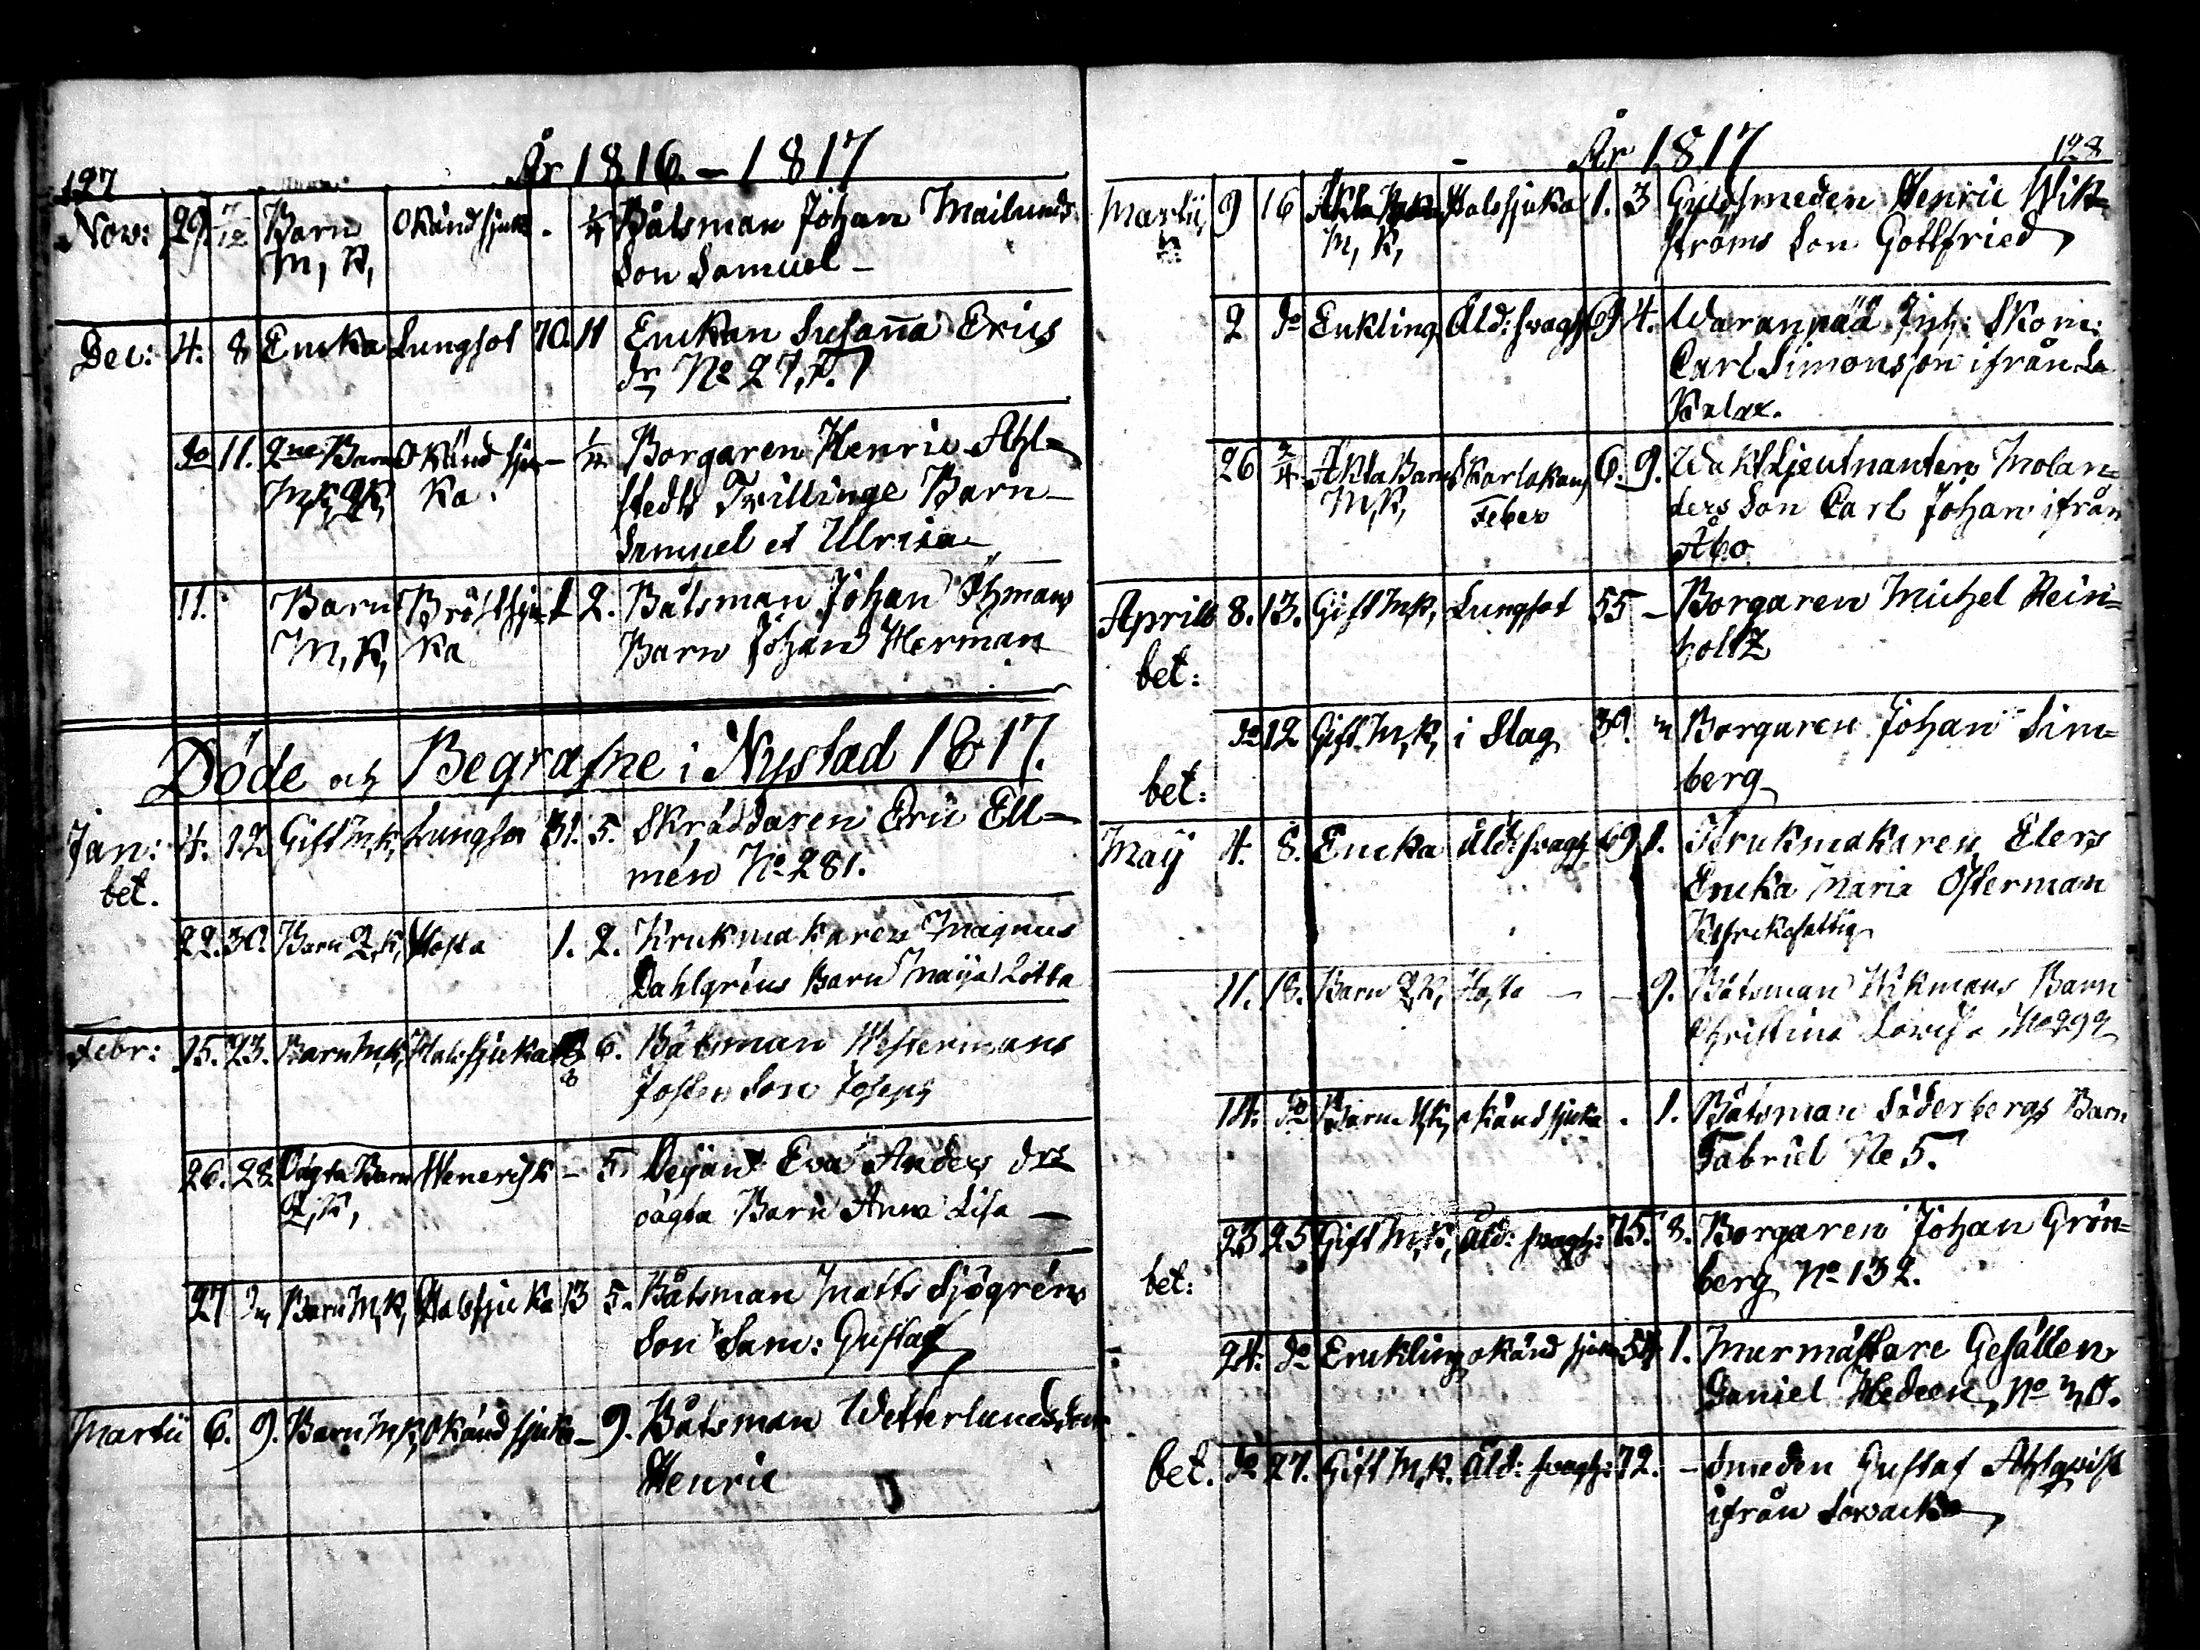 127
År 1816 – 1817
Nov: 29. 7/12 Barn Okänd sjuk. - 1/4 Båtsman Johan Mailunds
M, K, Son Samuel –
Dec: 4. 8 Encka Lungsot 70. 11 Enckan Susanna Erics
dr No 27, P.
do 11. 2ne Barn Okänd sju- – Borgaren Henric Ahl=
MK, QK, ka. stedts Tvillinge Barn
Samuel et Ulrica
11. Barn Bröstsju- 2. Båtsman Johan Öhmans
M, K, ka Barn Johan Herman
Döde och Begrafne i Nystad 1817.
Jan: 4. 12 Gift M, K, Lungsot 31. 5. Skräddaren Eric Ell=
bet. mén No 281.
22. 30. Barn Q, K, Hosta 1. 2. Krukmakaren Magnus
Dahlgréns Barn Maija Lotta
Febr: 15. 23. Barn M, K, Halssjuka 6. Båtsman Westermans
Son Joseph
26. 28 Oägta Barn Wenerisk – 5. Deijan Eva Anders drs
Q, K, oägta Barn Anna Lisa –
27 Barn M, K, Halssjuka 13 5. Båtsman Matts Sjögréns
Son Sam: Gustaf
Martii 6. 9. Barn M, K, Okänd sjuka – 9. Båtsman Wetterlunds Son
Henric
128
År 1817
Martii 9 16 Äkta Barn Halssjuka 1. 3 Gullsmeden Henric Wik=
M, K, ströms Son Gottfried
2 do Enkling Åld: svagh 69 4. Waranpää Inh: Skom:
Carl Simonsson ifrån La
Kalax.
26 2/4 Äkta Barn Skarlakans 6. 9. Waktljeutnanten Molan=
M, K, Feber ders Son Carl Johan ifrån
Åbo
Aprill 8. 13. Gift M, K, Lungsot 55 – Borgaren Michel Rein=
bet: holtz
do 12 Gift M, K, i Slag 39. Borgaren Johan Sim=
bet: berg
Maij 4. 8. Encka Åld: svagh 69 1. Krukmakaren Elers
Encka Maria Österman
11. 18. Barn Q, K, Hosta – – 9. Båtsman Wikmans Barn
Christina Lovisa No 292
14. do Barn M, K, okänd sjuka . 1. Båtsman Söderbergs Barn
Gabriel No 5.
23 25 Gift M, K, Åld: svagh: 75. 8. Borgaren Johan Grön=
bet: berg No 132.
24. do Enckling okänd sjuka 54 1. Murmästare Gesällen
Daniel Hedeen, No 30.
bet. do 27. Gift M, K. Åld: svagh: 72. – Smeden Gustaf Ahlqvist
ifrån